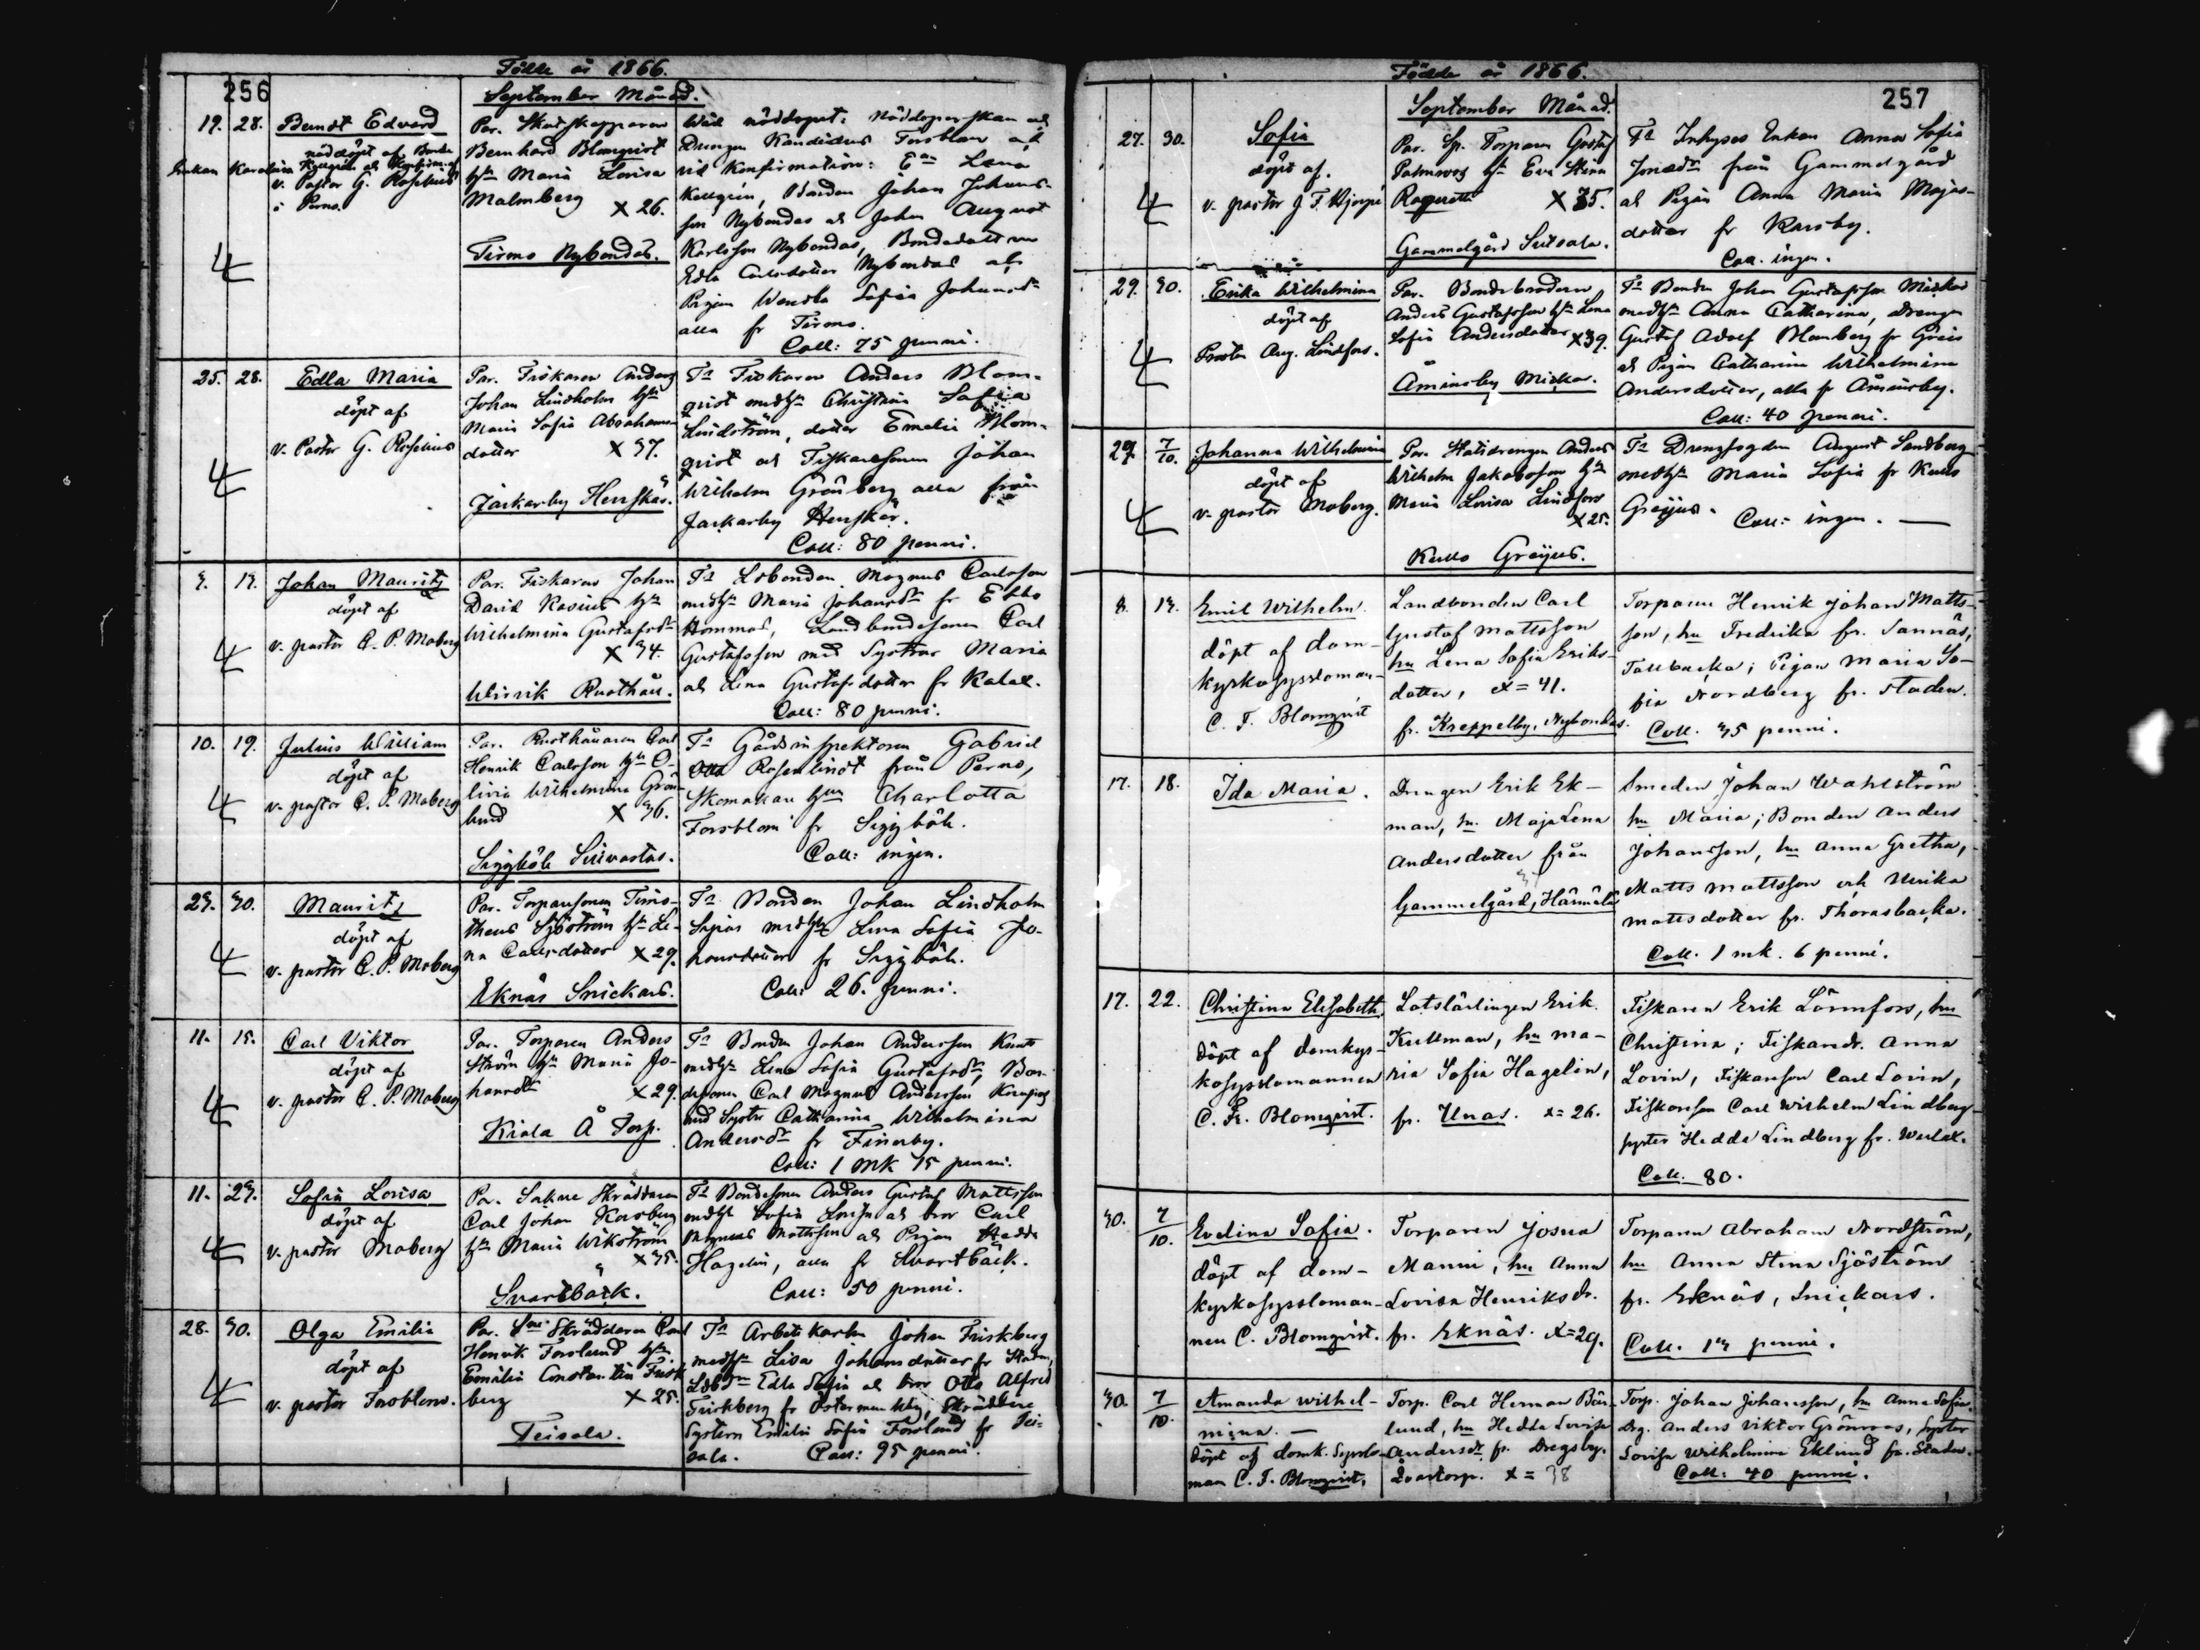 Födde år 1866.
256
September Månad.
19. 28. Berndt Edvard
nöddöpt af
v. Pastor G. Roselius
i Perno.
Par. Skutskepparen
Bernhard Blomqvist
hu Maria Lovisa
Malmberg X 26.
Tirmo Nybondas.
Wid nöddopet: Nöddoperskan och
Drengen Kandidus Forsblom och
vid Konfirmation: Lena
Kellgrén, Bonden Johan Johans-
son Nybondas och Johan August
Karlsson Nybondas, Bondedottren
Edla Carlsdotter Nybondas och
Pigan Wendla Sofia Johansdr
alla fr Tirmo.
Coll: 75 penni.
25. 28. Edla Maria
döpt af
v. Pastor G. Roselius
Par. Fiskaren Anders
Johan Lindholm hu
Maria Sofia Abrahams
dotter X 37.
Jackarby Herrskär.
Fr Fiskaren Anders Blom-
qvist med hu Christina Sofia
Lindström, dotter Emelie Blom-
qvist och Fiskaresonen Johan
Wilhelm Grönberg alla från
Jackarby Herrskär.
Coll: 80 penni.
3. 13. Johan Mauritz
döpt af
v. pastor C. P. Moberg
Par. Fiskaren Johan
David Rosius hu
Wilhelmina Gustafsdr
X 34.
Wirvik Rusthåll.
Fr Lsbonden Magnus Carlsson
med hu Maria Johansdr fr Ebbo
Hommas, Landbondesonen Carl
Gustafsson med Systrar Maria
och Lena Gustafsdotter fr Kalax.
Coll: 80 penni.
10. 19. Julius William
döpt af
v. pastor C. P. Moberg
Par. Rusthållaren Carl
Henrik Carlsson hu O-
livia Wilhelmina Grön-
lund X 36.
Siggböle
Fr Gårdsinspektoren Gabriel
Otto Rosenlindt från Perno,
Skomakare hu Charlotta
Forsblom fr Siggböle.
Coll: ingen.
23. 30. Mauritz
döpt af
v. pastor C. P. Moberg
Par. Torparsonen Timo-
theus Sjöström hu Le-
na Carlsdotter X 29.
Eknäs Snickars.
Fr Bonden Johan Lindholm
med hu Lena Sofia Jo-
hansdotter fr Siggböle.
Coll: 26. penni.
11. 15. Carl Viktor
döpt af
v. pastor C. P. Moberg
Par. Torparen Anders
Ström hu Maria Jo-
hansdr X 29.
Kiala Å Torp.
Fr Bonden Johan Andersson
med hu Lena Sofia Gustafsdr, Bon-
desonen Carl Magnus Andersson
med Syster Catharina Wilhelmina
Andersdr fr Finnby.
Coll: 1 mk 75 penni.
11. 23. Sofia Lovisa
döpt af
v. pastor Moberg
Par. Sockne Skräddaren
Carl Johan Korsberg
hu Maria Wikström
X 35.
Svartbäck.
Fr Bondesonen Anders Gustaf Mattsson
med Sofia Lovisa och bror Carl
Magnus Mattsson och Pigan Hedda
Hagelin, alla fr Svartbäck.
Coll: 50 penni.
28. 30. Olga Emilia
döpt af
v. pastor Forsblom.
Par. Skräddaren Carl
Henrik Forslund hu
Emilia Constantia Frisk
berg X 25.
Teisala.
Fr Arbetskarlen Johan Friskberg
med hu Lisa Johansdotter fr Staden,
Edla Sofia och bror Otto Alfred
Friskberg fr Östermunkby, Skräddare
Systern Emilia Sofia Forslund fr Tei-
sala. Coll: 95 penni.
Födde år 1866.
257
September Månad.
27. 30. Sofia
döpt af.
v. pastor J. F.
Par. Sp. Torparen Gustaf
Palmroos hu Eva Stina
X 35.
Gammelgård Sutsala.
Fr Inhyses Enkan Anna Sofia
Jonædr från Gammelgård
och Pigan Anna Maria Majas-
dotter fr Karsby.
Coll. ingen.
29. 30. Erika Wilhelmina
döpt af
Prosten Aug. Lindfors.
Par. Bondebrodern
Anders Gustafsson hu Lena
Sofia Andersdotter X 39.
Åminsby Mickos.
Fr Bonden Johan Gustafsson Mickos
med hu Anna Catharina, Drengen
Gustaf Adolf Blomberg fr Greis
och Pigan Catharina Wilhelmina
Andersdotter, alla fr Åminsby.
Coll: 40 penni.
29. 7/10. Johanna Wilhelmina
döpt af
v. pastor Moberg.
Par. Statdrengen Anders
Wilhelm Jakobsson hu
Maria Lovisa Lindfors
X 25.
Kullo Greijus.
Fr Drengfogden August Sandberg
med hu Maria Sofia fr Kullo
Greijus. Coll: ingen.
8. 13. Emil Wilhelm.
döpt af dom-
kyrkosyssloman-
C. F. Blomqvist
Landbonden Carl
Gustaf Mattsson
hu Lena Sofia Eriks-
dotter, x = 41.
fr. Kreppelby, Nybondas.
Torparen Henrik Johan Matts-
son, hu Fredrika fr. Sannäs,
Tallbacka; Pigan Maria So-
fia Nordberg fr. Staden.
Coll. 35 penni.
17. 18. Ida Maria.
Drengen Erik Ek-
man, hu. Maja Lena
Andersdotter från
Gammelgård, Härmälä
Smeden Johan Wahlström
hu Maria; Bonden Anders
Johansson, hu Anna Gretha,
Matts Mattsson och Ulrika
Mattsdotter fr. Thorasbacka.
Coll. 1 mk. 6 penni.
17. 22. Christina Elisabeth.
döpt af domkyr-
kosysslomannen
C. Fr. Blomqvist.
Lotslärlingen Erik
Kullman, hu Ma-
ria Sofia Hagelin,
fr. Unas. x = 26.
Fiskaren Erik Lönnfors, hu
Christina; Fiskaredr. Anna
Lovin, Fiskarson Carl Lovin,
Fiskarson Carl Wilhelm Lindberg
syster Hedda Lindberg fr. Werlax.
Coll. 80.
30. 7/10. Evelina Sofia.
döpt af dom-
kyrkosyssloman-
nen C. Blomqvist.
Torparen Josua
Manni, hu Anna
Lovisa Henriksdr.
fr. Eknäs. x=29.
Torparen Abraham Nordström,
hu Anna Stina Sjöström
fr. Eknäs, Snickars.
Coll. 13 penni.
30. 7/10. Amanda Wilhel-
mina. —
döpt af domk. Sysslo-
man C. F. Blomqvist.
Torp. Carl Herman Rön-
lund, hu Hedda Lovisa
Andersdr fr. Dregsby.
Qvartorp. x = 38
Torp. Johan Johansson, hu Anna Sofia.
Drg. Anders Viktor Grönroos, Syster
Lovisa Wilhelmina Eklund fr. Staden.
Coll: 40 penni.